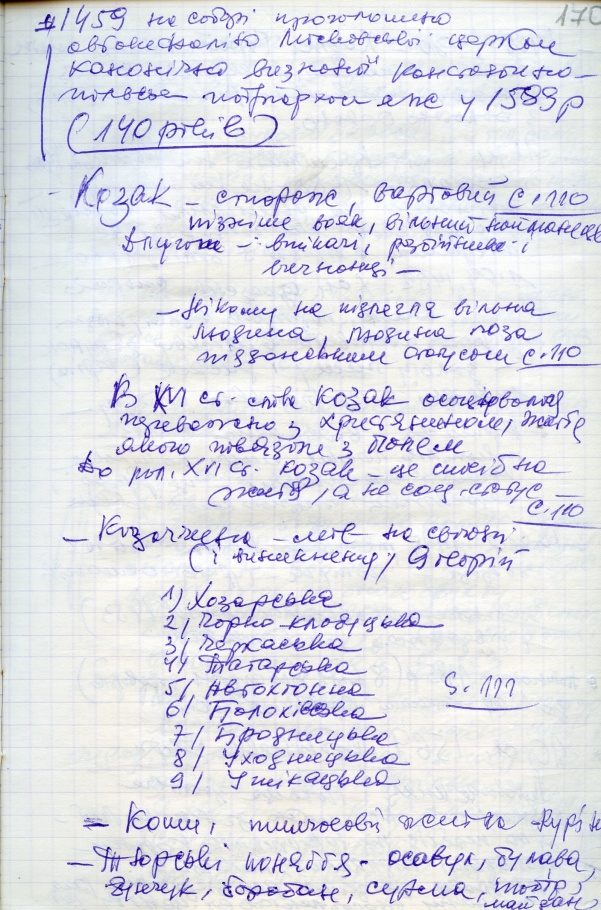 170
1459 на соборі проголошено
автокефалію Московської церкви
канонічно визнаної Константино-
польським патріархом аж у 1589 р
(140 років)
- Козак – сторож, вартовий С. 110
пізніше вояк, вільний найманець
Випугоне – втікачі, розбійники і
вигнанці –
– Нікому не підлегла вільна
людина, людина поза
підданським статусом С. 110
В XVI ст. слово козак асоціювалося
переважно з християнином, життя
якого пов'язане з полем
До пол. XVI ст. козак – це спосіб
життя, а не соц. статус –
С. 110
– Козаччина – на сьогодні
(і виникнення) 9 теорій
1) Хозарська
2) Чорно-клобуцька
3) Черкаська
4) Татарська
5) Автохтонна
6) Болохівська
7) Бродницька
8) Уходницька
9) Утікацька
S. 111
– Кош, тимчасові житла – курінь
– Тюрські поняття – осавул, булава,
бунчук, барабан, сурма, майдан